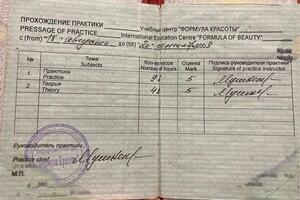 ПРОХОЖДЕНИЕ ПРАКТИКИ
Учебный центр "ФОРМУЛА КРАСОТЫ"
PRESSAGE OF PRACTICE
International Education Centre "FORMULA OF BEAUTY"
с (from) 18 августа по (till)
№ Тема Кол-во часов Оценка Подпись руководителя практики
Subjects Number of hours Mark Signature of practice instructor
1 Практика
Practice 5
2 Теория
Theory 48 5
Руководитель практики
Practice chief
М.П.